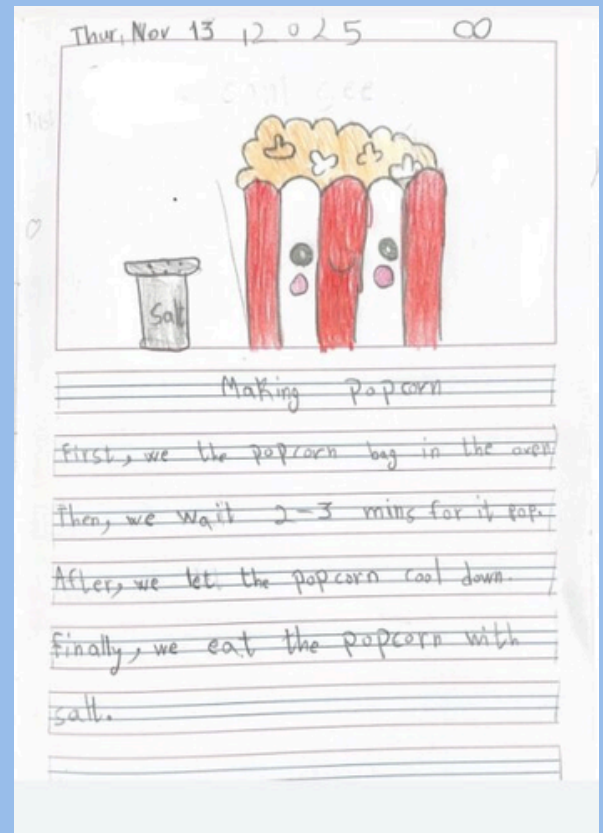 Thur, Nov 13, 2025
Salt
Making popcorn
First, we the popcorn bag in the oven
Then, we wait 2-3 mins for it pop.
After, we let the popcorn cool down.
Finally, we eat the popcorn with
salt.